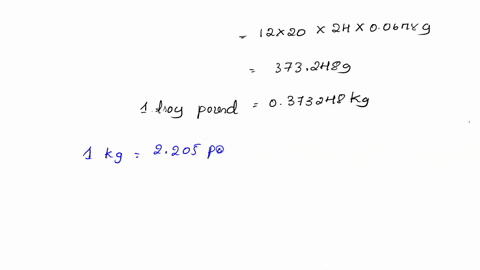 = 12 x 20 x 24 x 0.0648 g
= 373.248 g
1 troy pound = 0.373248 kg
1 kg = 2.205 po